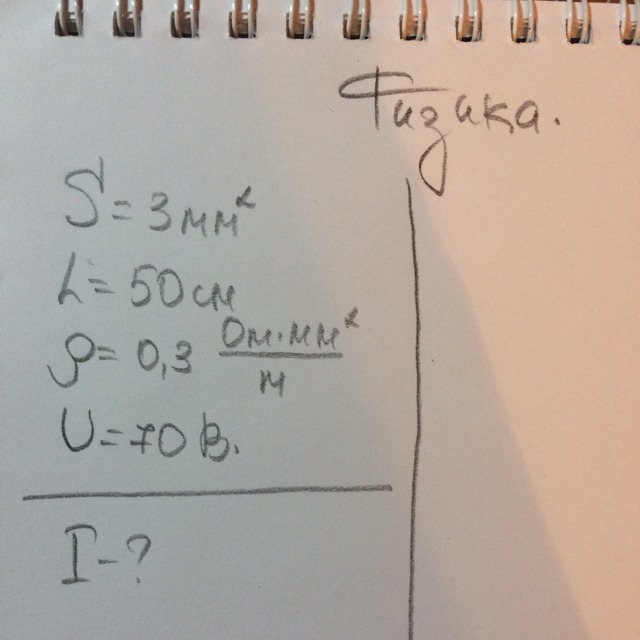 Физика.
S = 3 мм²
L = 50 см
ρ = 0,3 Ом·мм²/м
U = 70 В.
I - ?